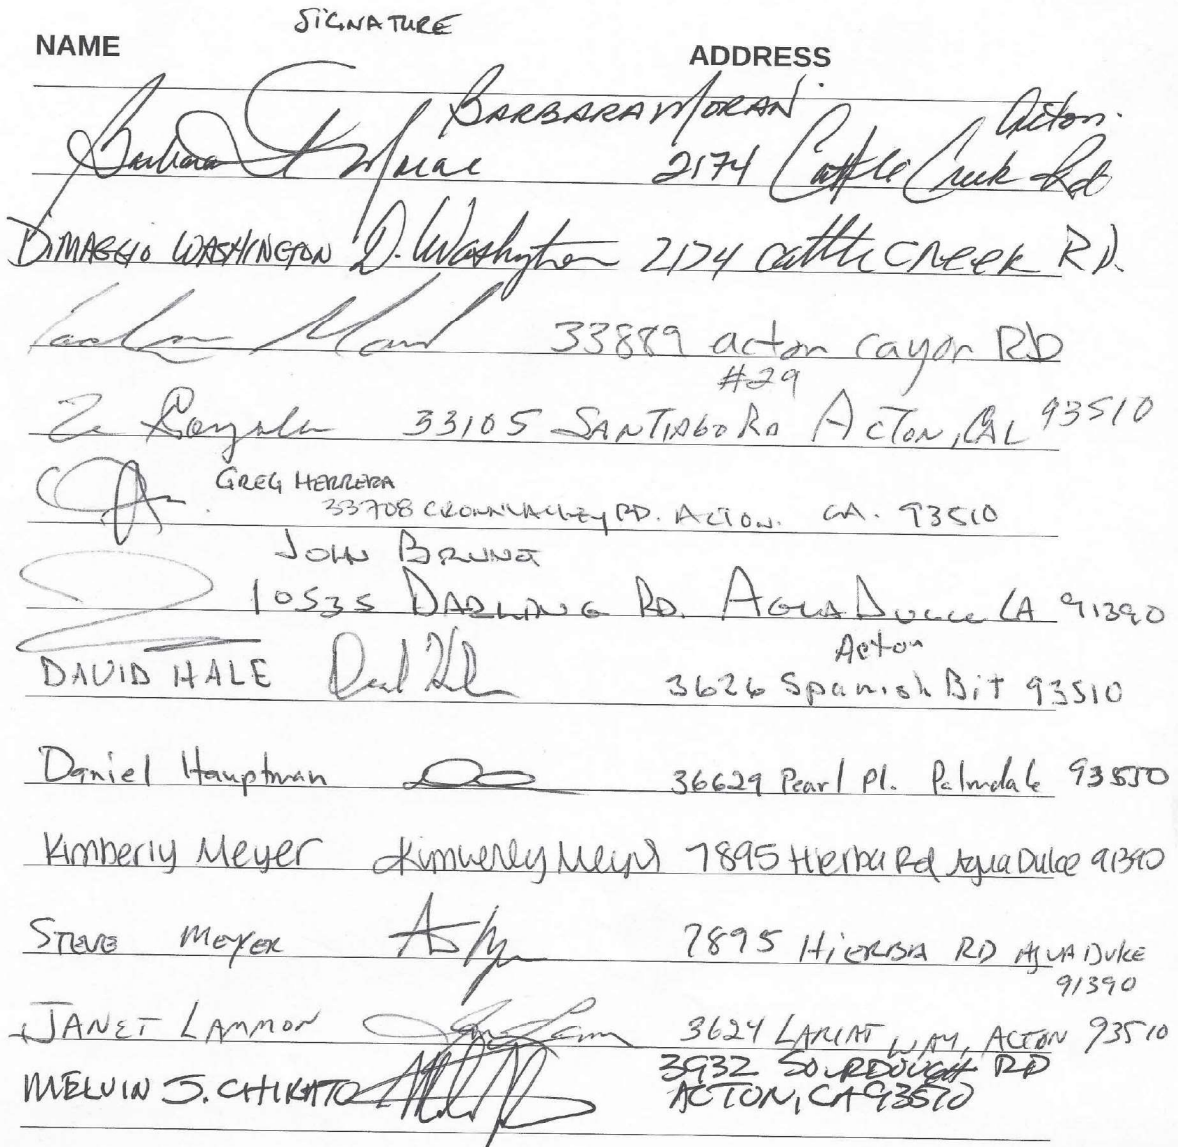 NAME SIGNATURE ADDRESS
BARBARA MORAN Acton.
Barbara 2174 Cattle Creek Rd
DIMAGGIO WASHINGTON D. Washington 2174 cattle CREEK RD.
33889 acton cayon RD
#29
33105 SANTIAGO RD ACTON, CAL 93510
GREG HERRERA
33708 CROWN VALLEY RD. ACTON. CA. 93510
JOHN BRUNET
10535 DARLING RD. AGUA DULCE CA 91390
Acton
DAVID HALE 3626 Spanish Bit 93510
Daniel Hauptman 36629 Pearl Pl. Palmdale 93550
Kimberly Meyer Kimberly Meyer 7895 Hierba Rd Agua Dulce 91390
STEVE MEYER 7895 HIERBA RD AGUA DULCE
91390
JANET LAMMON 3624 LARIAT WAY, ACTON 93510
3932 SOURDOUGH RD
MELVIN J. ACTON, CA 93510